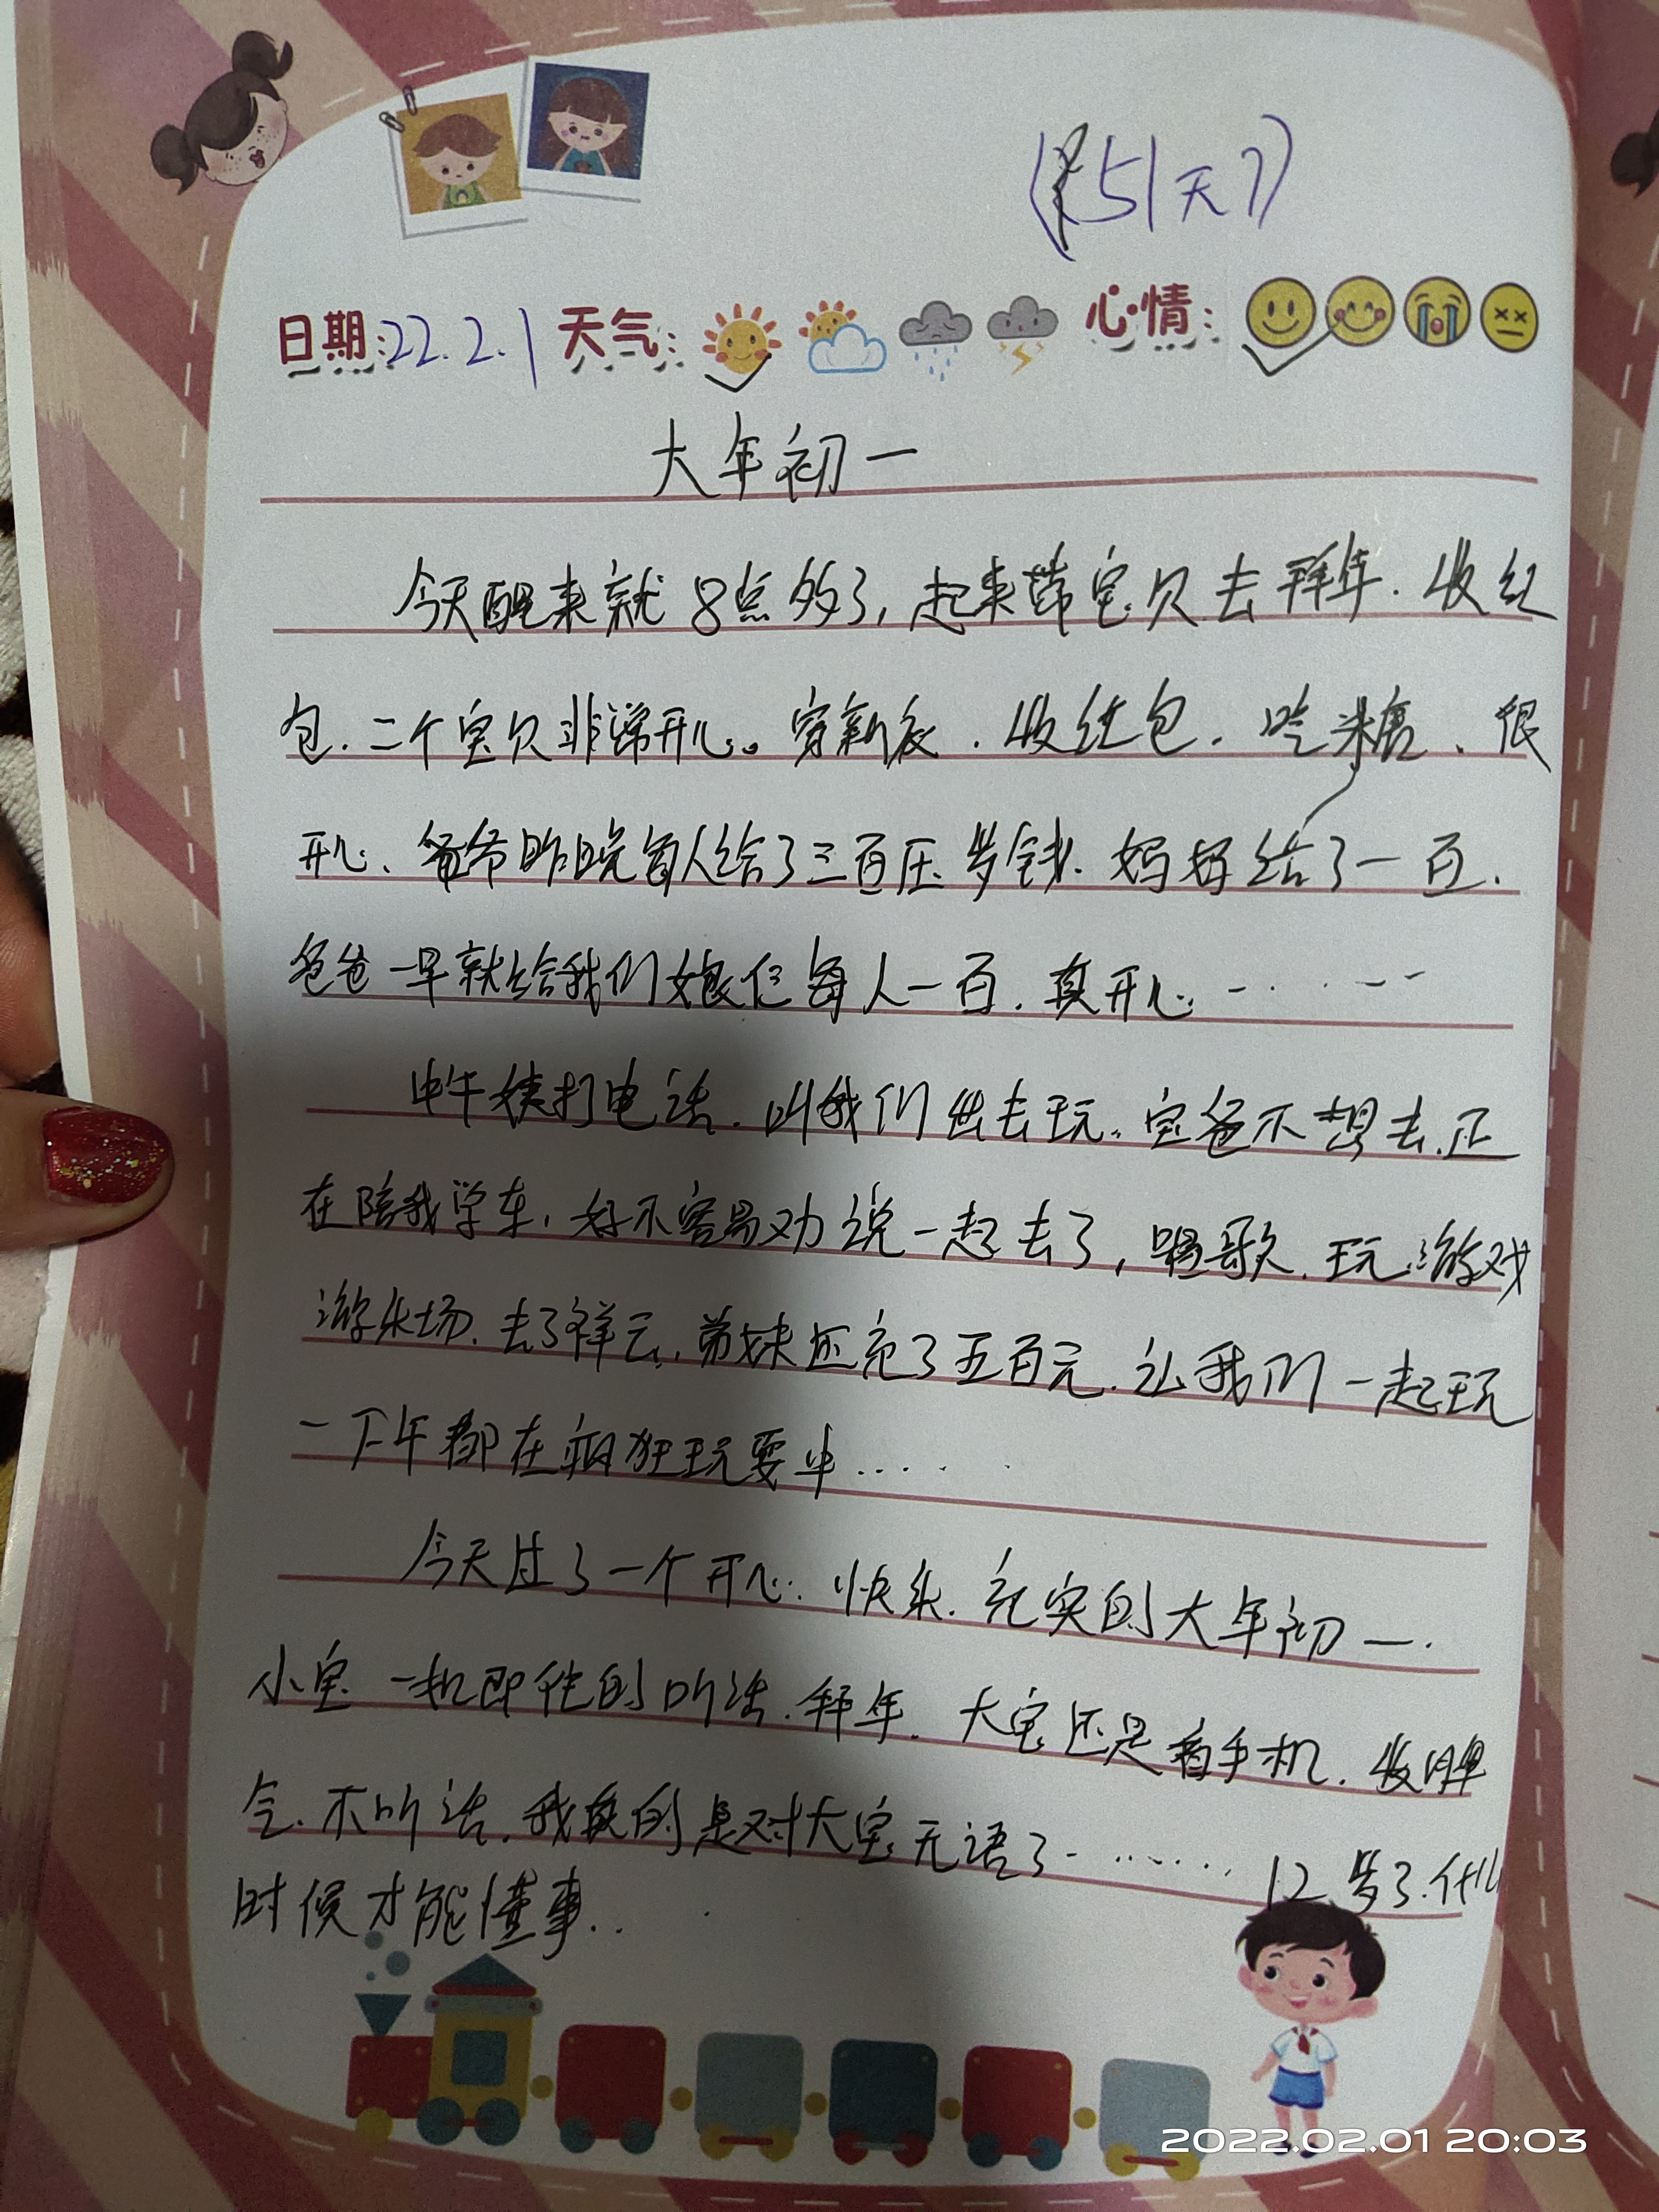 (51天)
日期:22.2.1 天气: 心情:
大年初一
今天醒来就8点多了,起来带宝贝去拜年.收红
包.二个宝贝非常开心。穿新衣.收红包.吃糖、很
开心、爸爸昨晚每人给了三百压岁钱.妈妈给了一百.
爸爸一早就给我们娘仨每人一百.真开心......
中午姨打电话.叫我们出去玩.宝爸不想去.正
在陪我学车,好不容易劝说一起去了,唱歌.玩游戏
游乐场.去了祥云.弟妹还充了五百元.让我们一起玩
一下午都在疯狂玩耍中....
今天过了一个开心.快乐.充实的大年初一.
小宝一如即往的听话.拜年.大宝还是看手机.收脾
气.不听话.我真的是对大宝无语了.......12岁了.什么
时候才能懂事..
2022.02.01 20:03